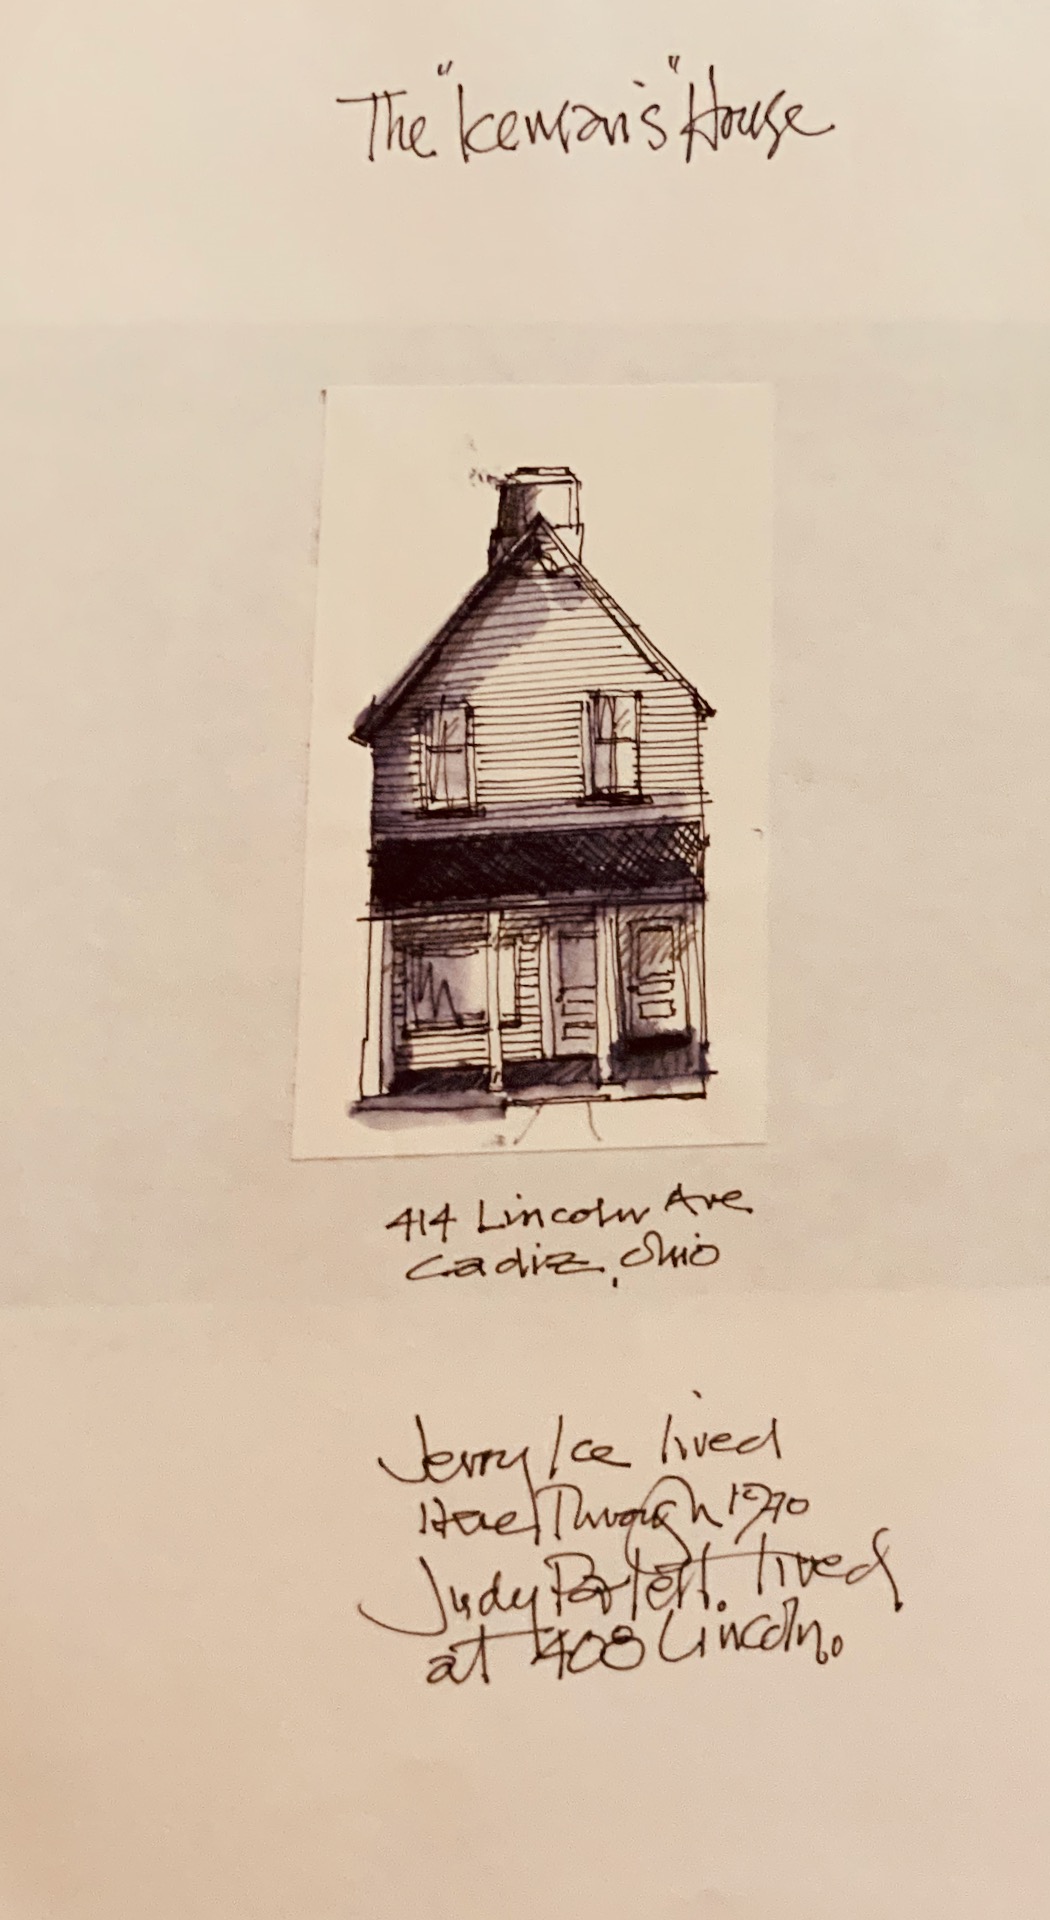 The "Iceman's" House
414 Lincoln Ave
Cadiz, Ohio
Jerry Ice lived
Here Through 1970
Judy lived
at 408 Lincoln.